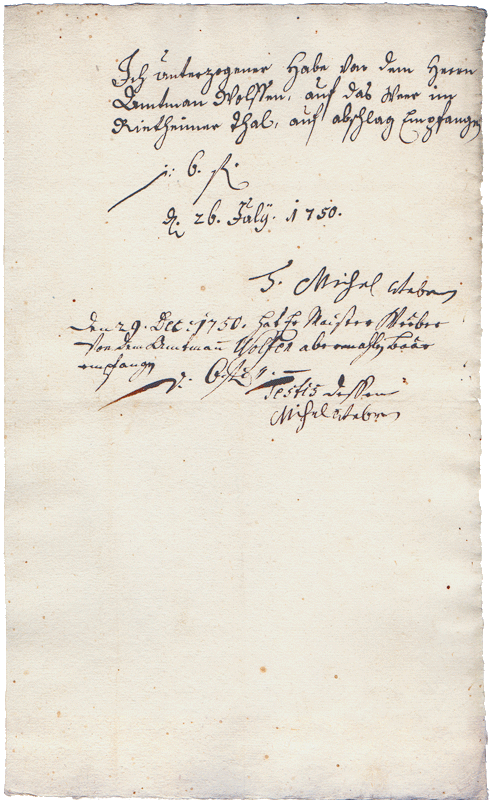 Ich unterzogener Habe von dem Herrn
Ambtman Wolffen, auf das Weer im
Rietheimer Thal, auf abschlag Empfangen
6. fl.
d. 26. July. 1750.
Michel Weber
Den 29. Dec: 1750. hat Hr Maister Weber
Von dem Ambtmann Wolffen abermahlen baar
empfangen
6. fl.
Testis dessen
Michel Weber